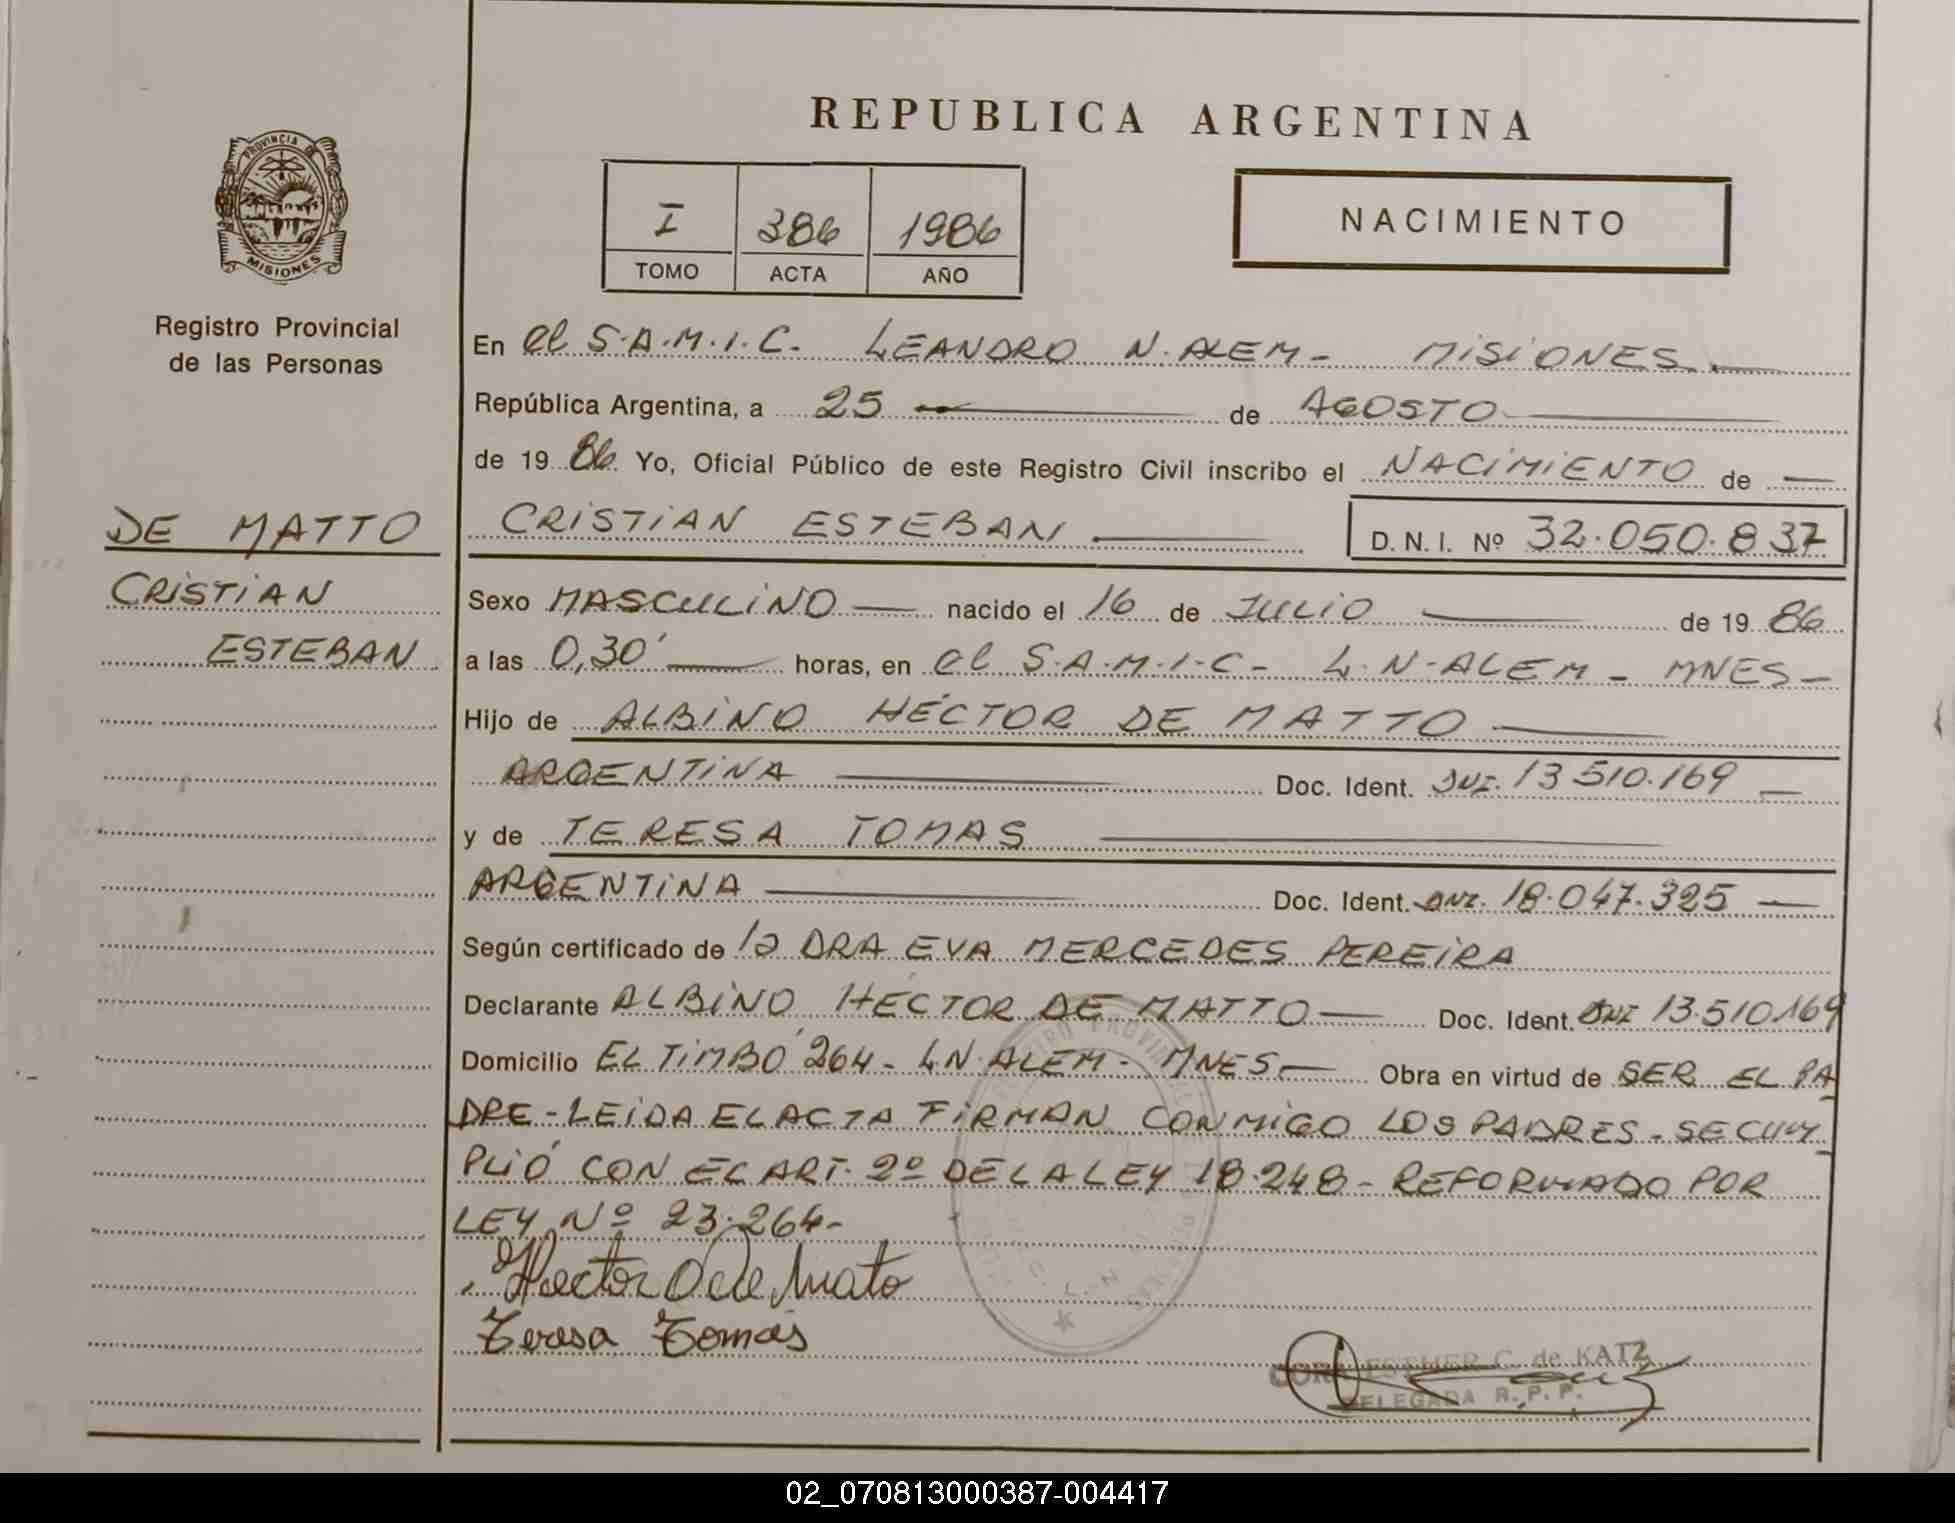 REPUBLICA ARGENTINA
PROVINCIA DE
MISIONES
Registro Provincial
de las Personas
I 386 1986
TOMO ACTA AÑO
NACIMIENTO
En el S.A.M.I.C. LEANDRO N. ALEM - MISIONES
República Argentina, a 25 de AGOSTO
de 19 86. Yo, Oficial Público de este Registro Civil inscribo el NACIMIENTO de
DE MATTO
CRISTIAN
ESTEBAN
CRISTIAN ESTEBAN D.N.I. Nº 32.050.837
Sexo MASCULINO nacido el 16 de JULIO de 19 86
a las 0,30' horas, en el S.A.M.I.C- L.N-ALEM - MNES-
Hijo de ALBINO HÉCTOR DE MATTO
ARGENTINA Doc. Ident. DNI. 13 510.169
y de TERESA TOMAS
ARGENTINA Doc. Ident. DNI. 18.047.325
Según certificado de la DRA EVA MERCEDES PEREIRA
Declarante ALBINO HÉCTOR DE MATTO Doc. Ident. DNI 13.510.169
Domicilio EL TIMBÓ 264 - L N. ALEM - MNES. Obra en virtud de SER EL PA
DRE - LEIDA EL ACTA FIRMAN CONMIGO LOS PADRES - SE CUM
PLIÓ CON EL ART. 2º DE LA LEY 18.248 - REFORMADO POR
LEY Nº 23.264-
Hector De Mato
Teresa Tomas
ESTHER C. de KATZ
DELEGADA R.P.P.
02_070813000387-004417